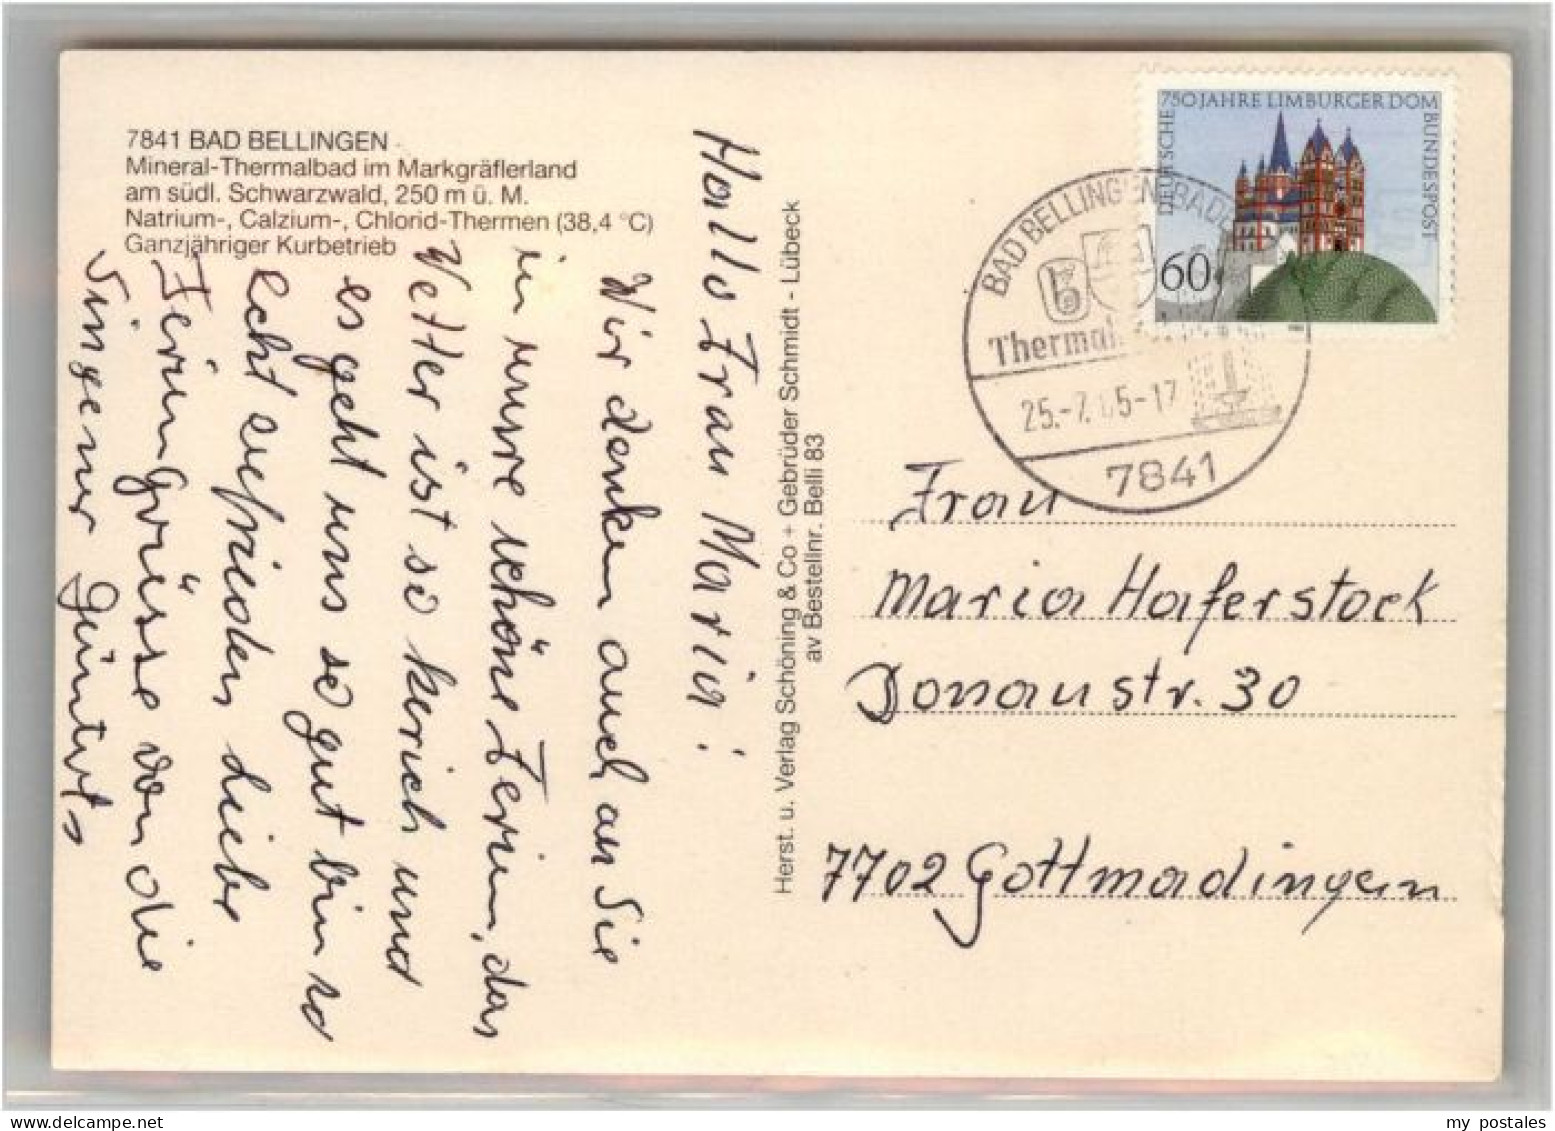 7841 BAD BELLINGEN
Mineral-Thermalbad im Markgräflerland
am südl. Schwarzwald, 250 m ü. M.
Natrium-, Calzium-, Chlorid-Thermen (38,4 °C)
Ganzjähriger Kurbetrieb
Hallo Frau Maria!
Wir denken auch an Sie
in unsre schöne Ferien, das
Wetter ist so herich und
es geht uns so gut bin so
echt zufrieden Liebe
Feriengrüsse von die
Singener Günters
Herst. u. Verlag Schöning & Co + Gebrüder Schmidt - Lübeck
av Bestellnr. Belli 83
750 JAHRE LIMBURGER DOM
DEUTSCHE
BUNDESPOST
60
BAD BELLINGEN, BADEN
Thermal
25.-7. 5-17
7841
Frau
Maria Haferstock
Donaustr. 30
7702 Gottmadingen
my postales